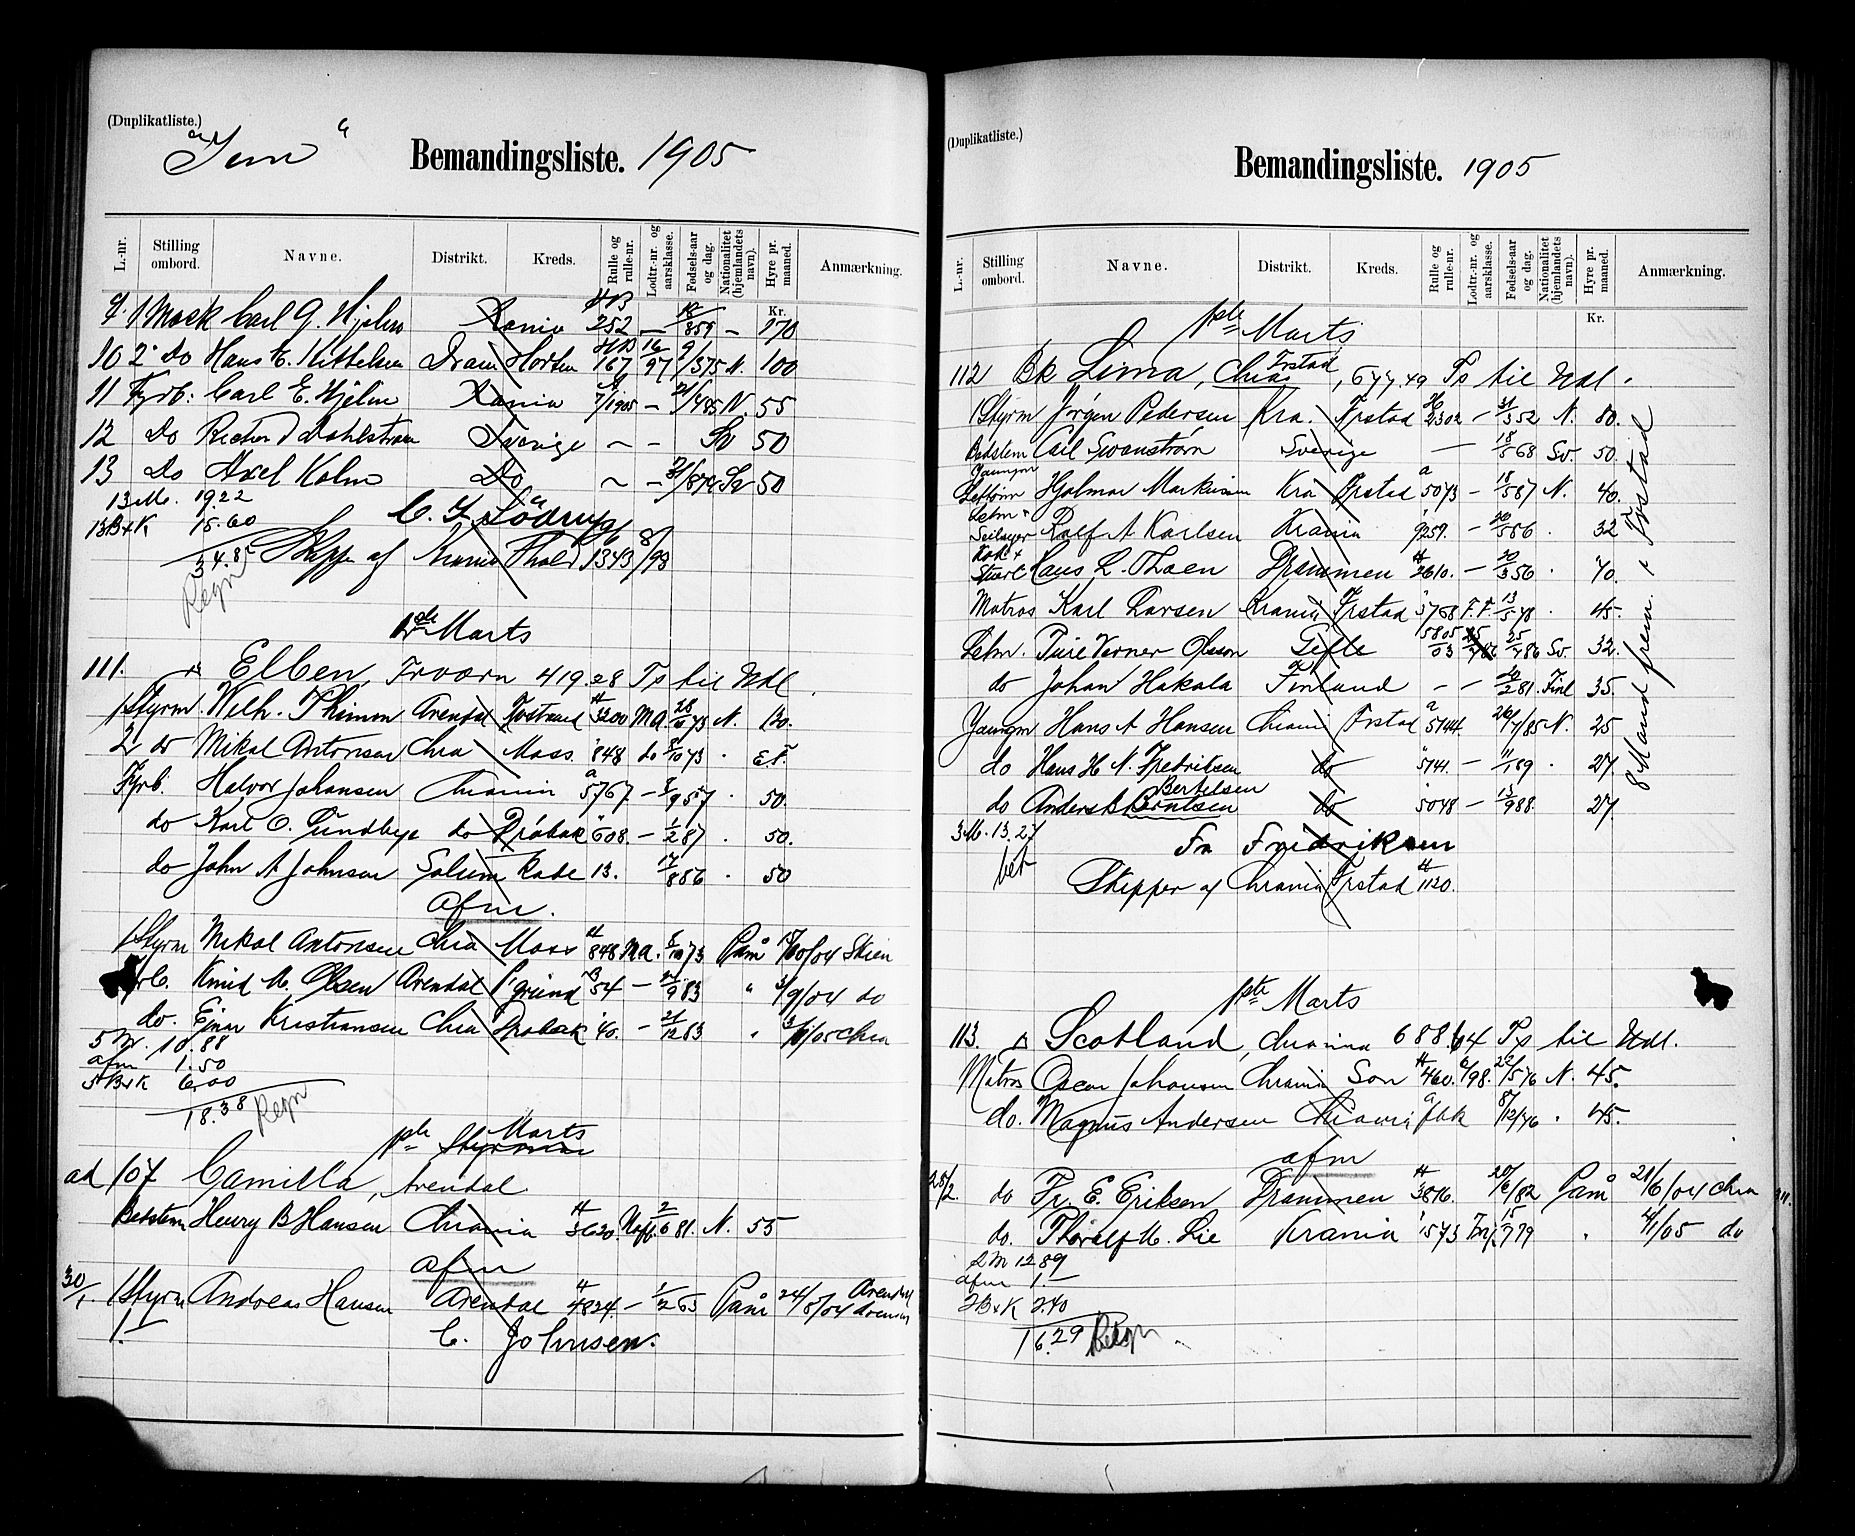 (Duplikatliste.)
Bemandingsliste. 1905
L.-nr. Stilling ombord. Navne. Distrikt. Kreds. Rulle og rulle-nr. Lodtr-nr. og aarsklasse. Fødsels-aar og dag. Nationalitet (hjemlandets navn). Hyre pr. maaned. Anmærkning.
Kr.
9. 1 Mask Carl G. Hjelm Krania 252 — 859 — 170
10 2 do Hans C. Kittelsen Dram Horten 167 16/97 9/1 375 N. 100
11 Fyrb. Carl E. Hjelm Krania 7/1905 — 21/485 N. 55
12 Do Richard Dahlstrøm Sverige ~ — Sv 50
13 Do Axel Kolm Do ~ — /874 Sv 50
13 M. 19.22
13 B+K 15.60
34.85
Regn
Skipper af Krania 1343 8/98
1ste Marts
111. Elben, Tvrærn 419.28 Ts til Udl.
1 Styrm Wilh. Thimon Arendal Tvestrand 3200 M.A. 28/ 73 N. 120.
2 do Mikal Antonsen Chra Moss 848 do 8/10 73 . E.F.
Fyrb. Halvor Johansen Chrania 5767 — 8/9 57 . 50.
do Karl O. Sundbye do Drøbak 608. — 1/2 87 . 50.
do John A Johnsen Solum 13. 17/8 86 . 50
afm.
1 Styrm Mikal Antonsen Chra Moss 848 M.A. 8/10 73 Paam /10/04 Skien
Knud M. Olsen Arendal P'grund 54 — 2/9 83 " 3/9/04 do
do. Ejnar Kristiansen Chra Drøbak 40. — 21/12 83 " 3/1/05 Chra
5 M. 10.88
afm 1.50
5 B+K 6.00
18.38 Regn
1ste Marts
ad 107 Camilla, Arendal
Bedstem Henry B Hansen Chrania 3620 2/6 81. N. 55
afm
30/1. 1 Styrm Andreas Hansen Arendal 4824 — 1/2 63 Paam 24/5/04 Arendal
C. Johnsen.
(Duplikatliste.)
Bemandingsliste. 1905
L.-nr. Stilling ombord. Navne. Distrikt. Kreds. Rulle og rulle-nr. Lodtr-nr. og aarsklasse. Fødsels-aar og dag. Nationalitet (hjemlandets navn). Hyre pr. maaned. Anmærkning.
Kr.
1ste Marts
112 Bk Lima, Chra Frstad, 677.49 Ts til Udl.
1 Styrm Jørgen Pedersen Kra. Frstad 2302 — 21/3 52 N. 80.
Bedstem Carl Svanstrøm Sverige — 18/5 68 Sv. 50.
Jungm
Hjalmar Markussen Kra Frstad 5073 — 18/5 87 N. 40.
Letm +
Seilmager Rolf A Karlsen Krania 9259. — 20/5 86 . 32
Kok +
Stuert Hans L. Thoen Drammen 2610. — 20/3 56 . 70.
Matros Karl Larsen Krania Frstad 3768 F.F. 13/5 78 . 45.
Letm. Ture Verner Olsson Gefle 5805/03 25/7 86 Sv. 32.
do Johan Hakala Finland — — 20/2 81. Finl 35.
Jungm Hans A Hansen Chrania Frstad 5744 26/7/85 N. 25
do Hans H. N. Fredriksen do 5741. — 11/1 89 . 27.
Bertelsen
do Anders B Berntsen do 5048 — 13/9 88. 27.
8 Mand frem i Frstad
3 M. 13.27
bet
Fr Fredriksen
Skipper af Chrania Frstad 1120.
1ste Marts
113. Scotland, Chrania 688.64 Ts til Udl.
Matros Oscar Johansen Chrania Son 460. 6/98. 22/5 76 N. 45.
do. Magnus Andersen Chrania fbk 8/12/76 . 45.
afm
25/2. do Fr. E. Eriksen Drammen 3816. 20/6/82 Paam 21/6/04 Chra
do. Thoralf M. Lie Krania 1573 15/7 79 " 4/1/05 do
2 M 12.89
afm 1.—
2 B+K 2.40
16.29 Regn